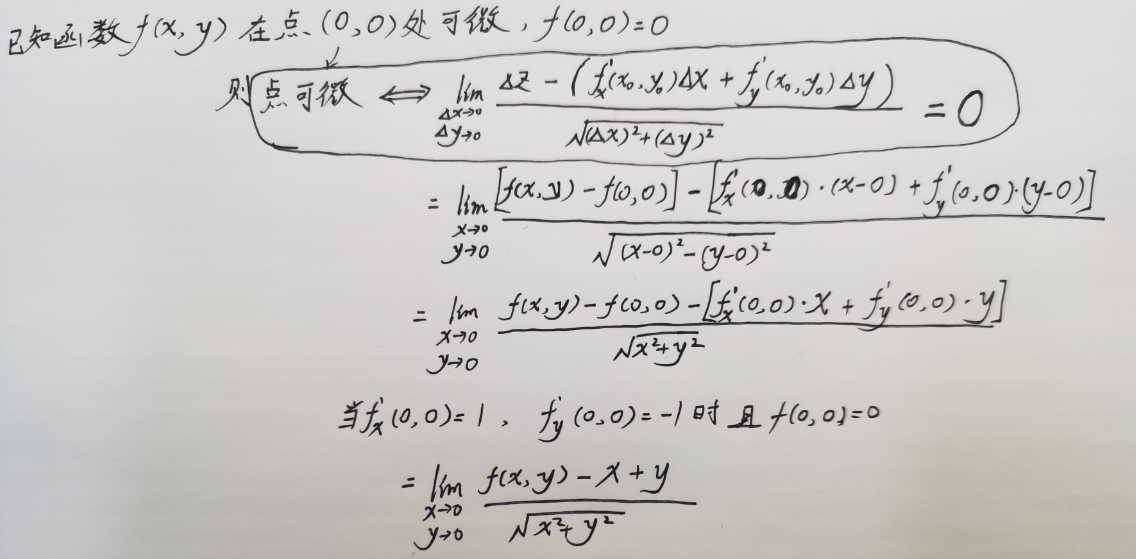 已知函数 f(x, y) 在点 (0, 0) 处可微, f(0, 0)=0
则 点可微 ⟺ lim Δx→0 Δy→0 [Δz - (f'x(x₀, y₀)Δx + f'y(x₀, y₀)Δy)] / √((Δx)²+(Δy)²) = 0
= lim x→0 y→0 {[f(x, y) - f(0, 0)] - [f'x(0, 0)·(x-0) + f'y(0, 0)·(y-0)]} / √((x-0)²-(y-0)²)
= lim x→0 y→0 {f(x, y) - f(0, 0) - [f'x(0, 0)·x + f'y(0, 0)·y]} / √(x²+y²)
当 f'x(0, 0)=1, f'y(0, 0)=-1 时 且 f(0, 0)=0
= lim x→0 y→0 [f(x, y) - x + y] / √(x²+y²)